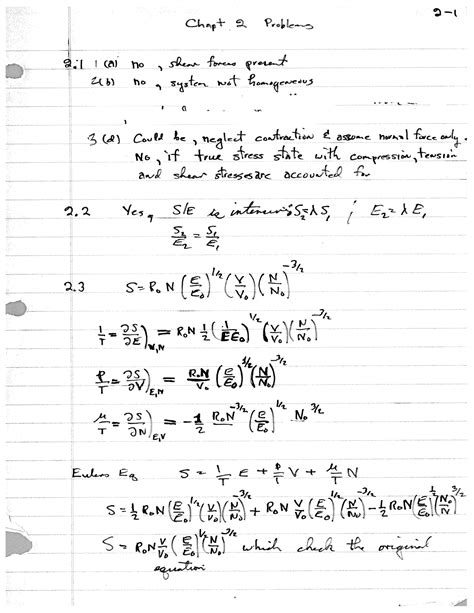 2-1
Chapt 2 Problems
2.1 1 (a) no, shear forces present
2 (b) no, system not homogeneous
3 (d) Could be, neglect contraction & assume normal force only.
No, if true stress state with compression, tension
and shear stresses are accounted for
2.2 Yes, S/E is intensive; S₂=λS₁ ; E₂=λE₁
S₂/E₂ = S₁/E₁
2.3 S = R₀ N (E/E₀)^1/2 (V/V₀) (N/N₀)^-3/2
1/T = ∂S/∂E)_V,N = R₀N 1/2 (1/EE₀)^1/2 (V/V₀) (N/N₀)^-3/2
P/T = ∂S/∂V)_E,N = R₀N/V₀ (E/E₀)^1/2 (N/N₀)^-3/2
μ/T = ∂S/∂N)_E,V = -1/2 R₀N^-3/2 (E/E₀)^1/2 N₀^3/2
Eulers Eq S = 1/T E + P/T V + μ/T N
S = 1/2 R₀N (E/E₀)^1/2 (V/V₀) (N/N₀)^-3/2 + R₀N V/V₀ (E/E₀)^1/2 (N/N₀)^-3/2 - 1/2 R₀N (E/E₀)^1/2 (N₀/N)^3/2
S = R₀N V/V₀ (E/E₀)^1/2 (N/N₀)^-3/2 which check the original
equation